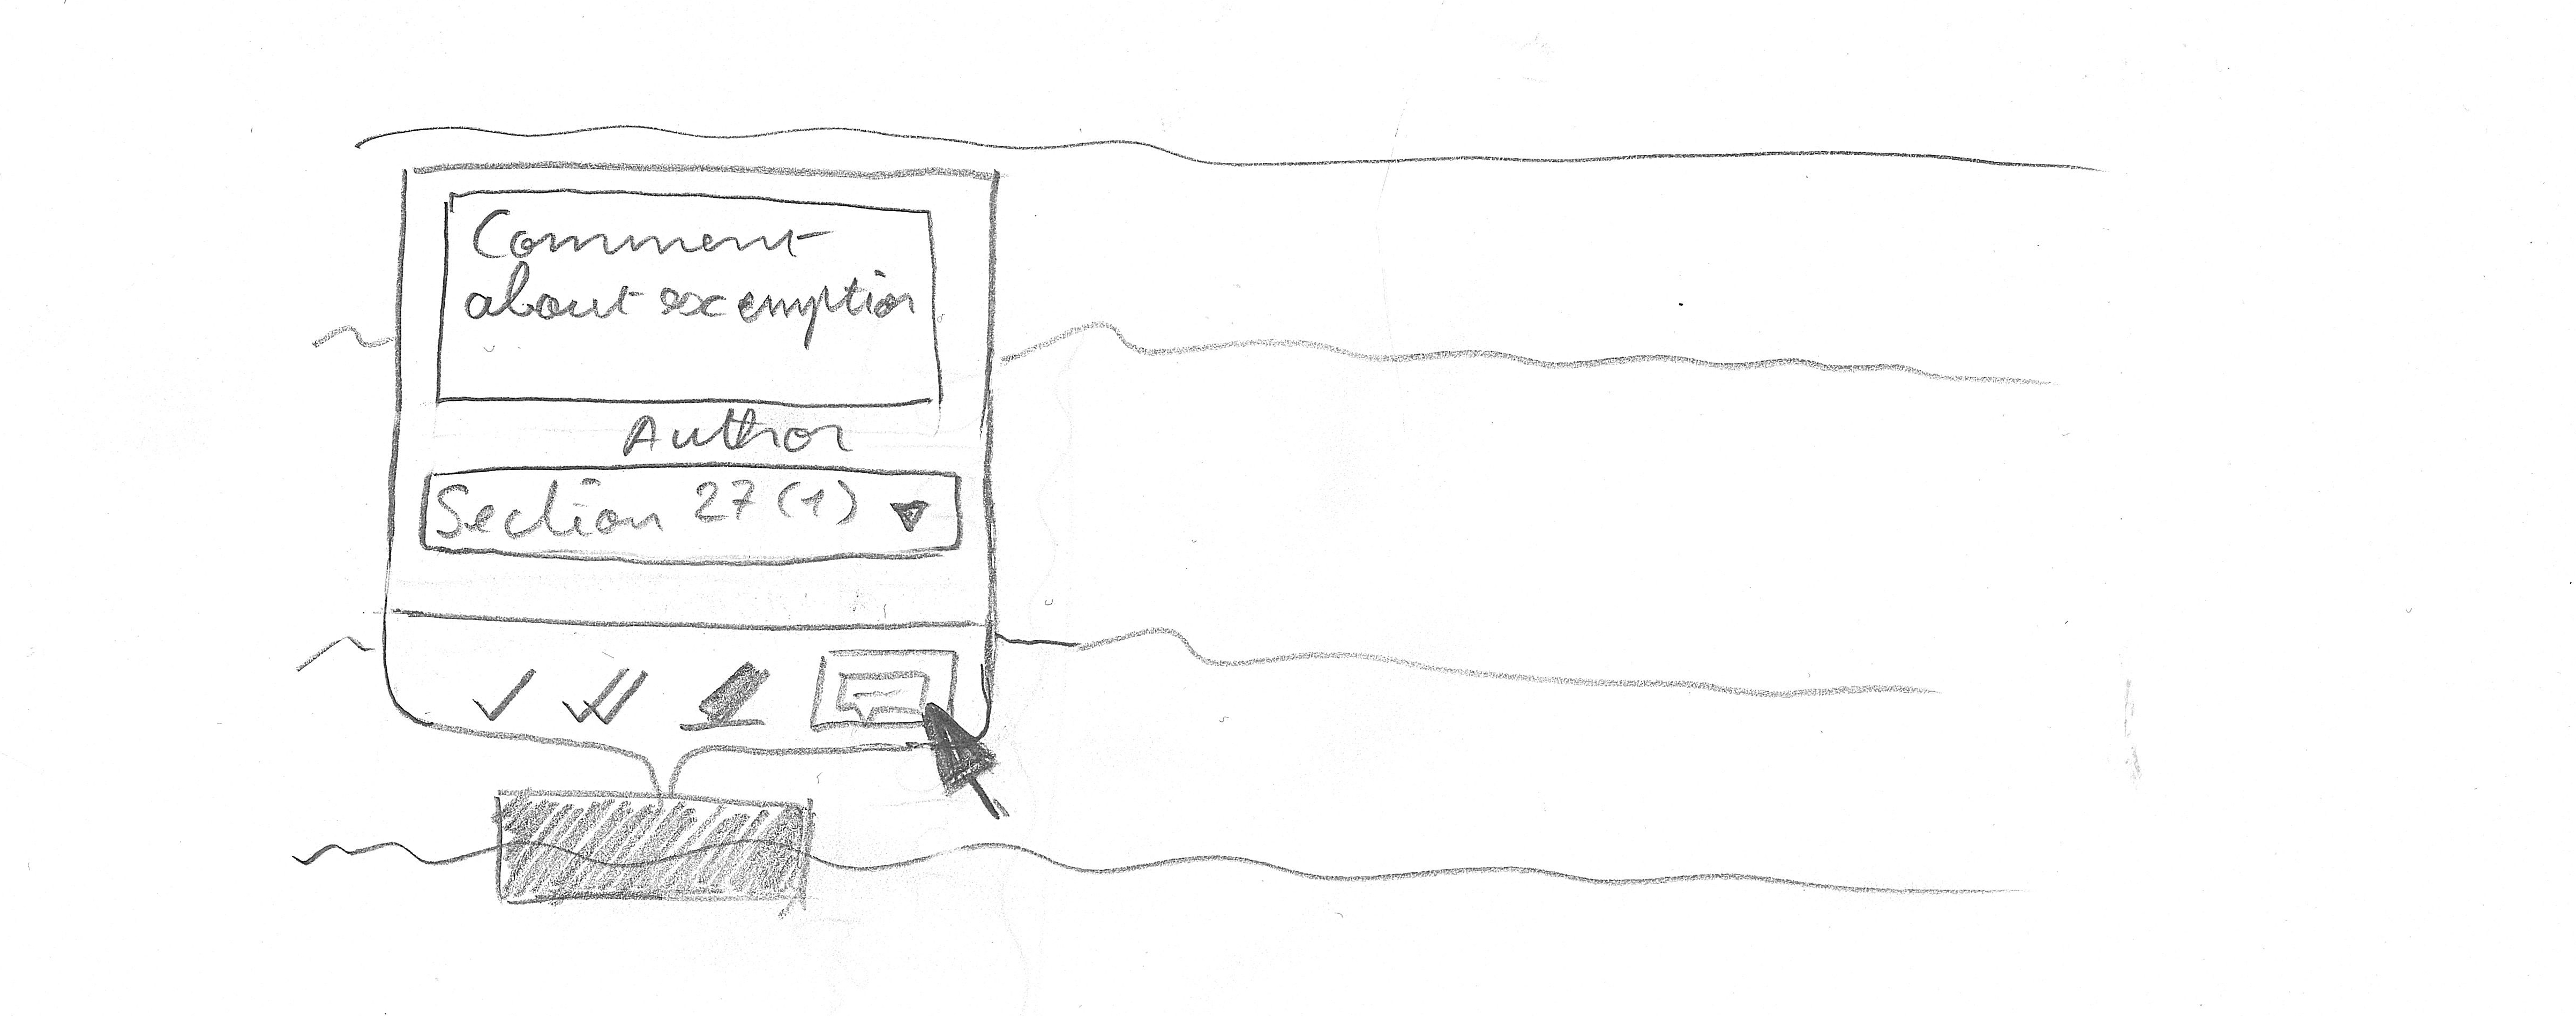 Comment
about exemption
Author
Section 27(1)